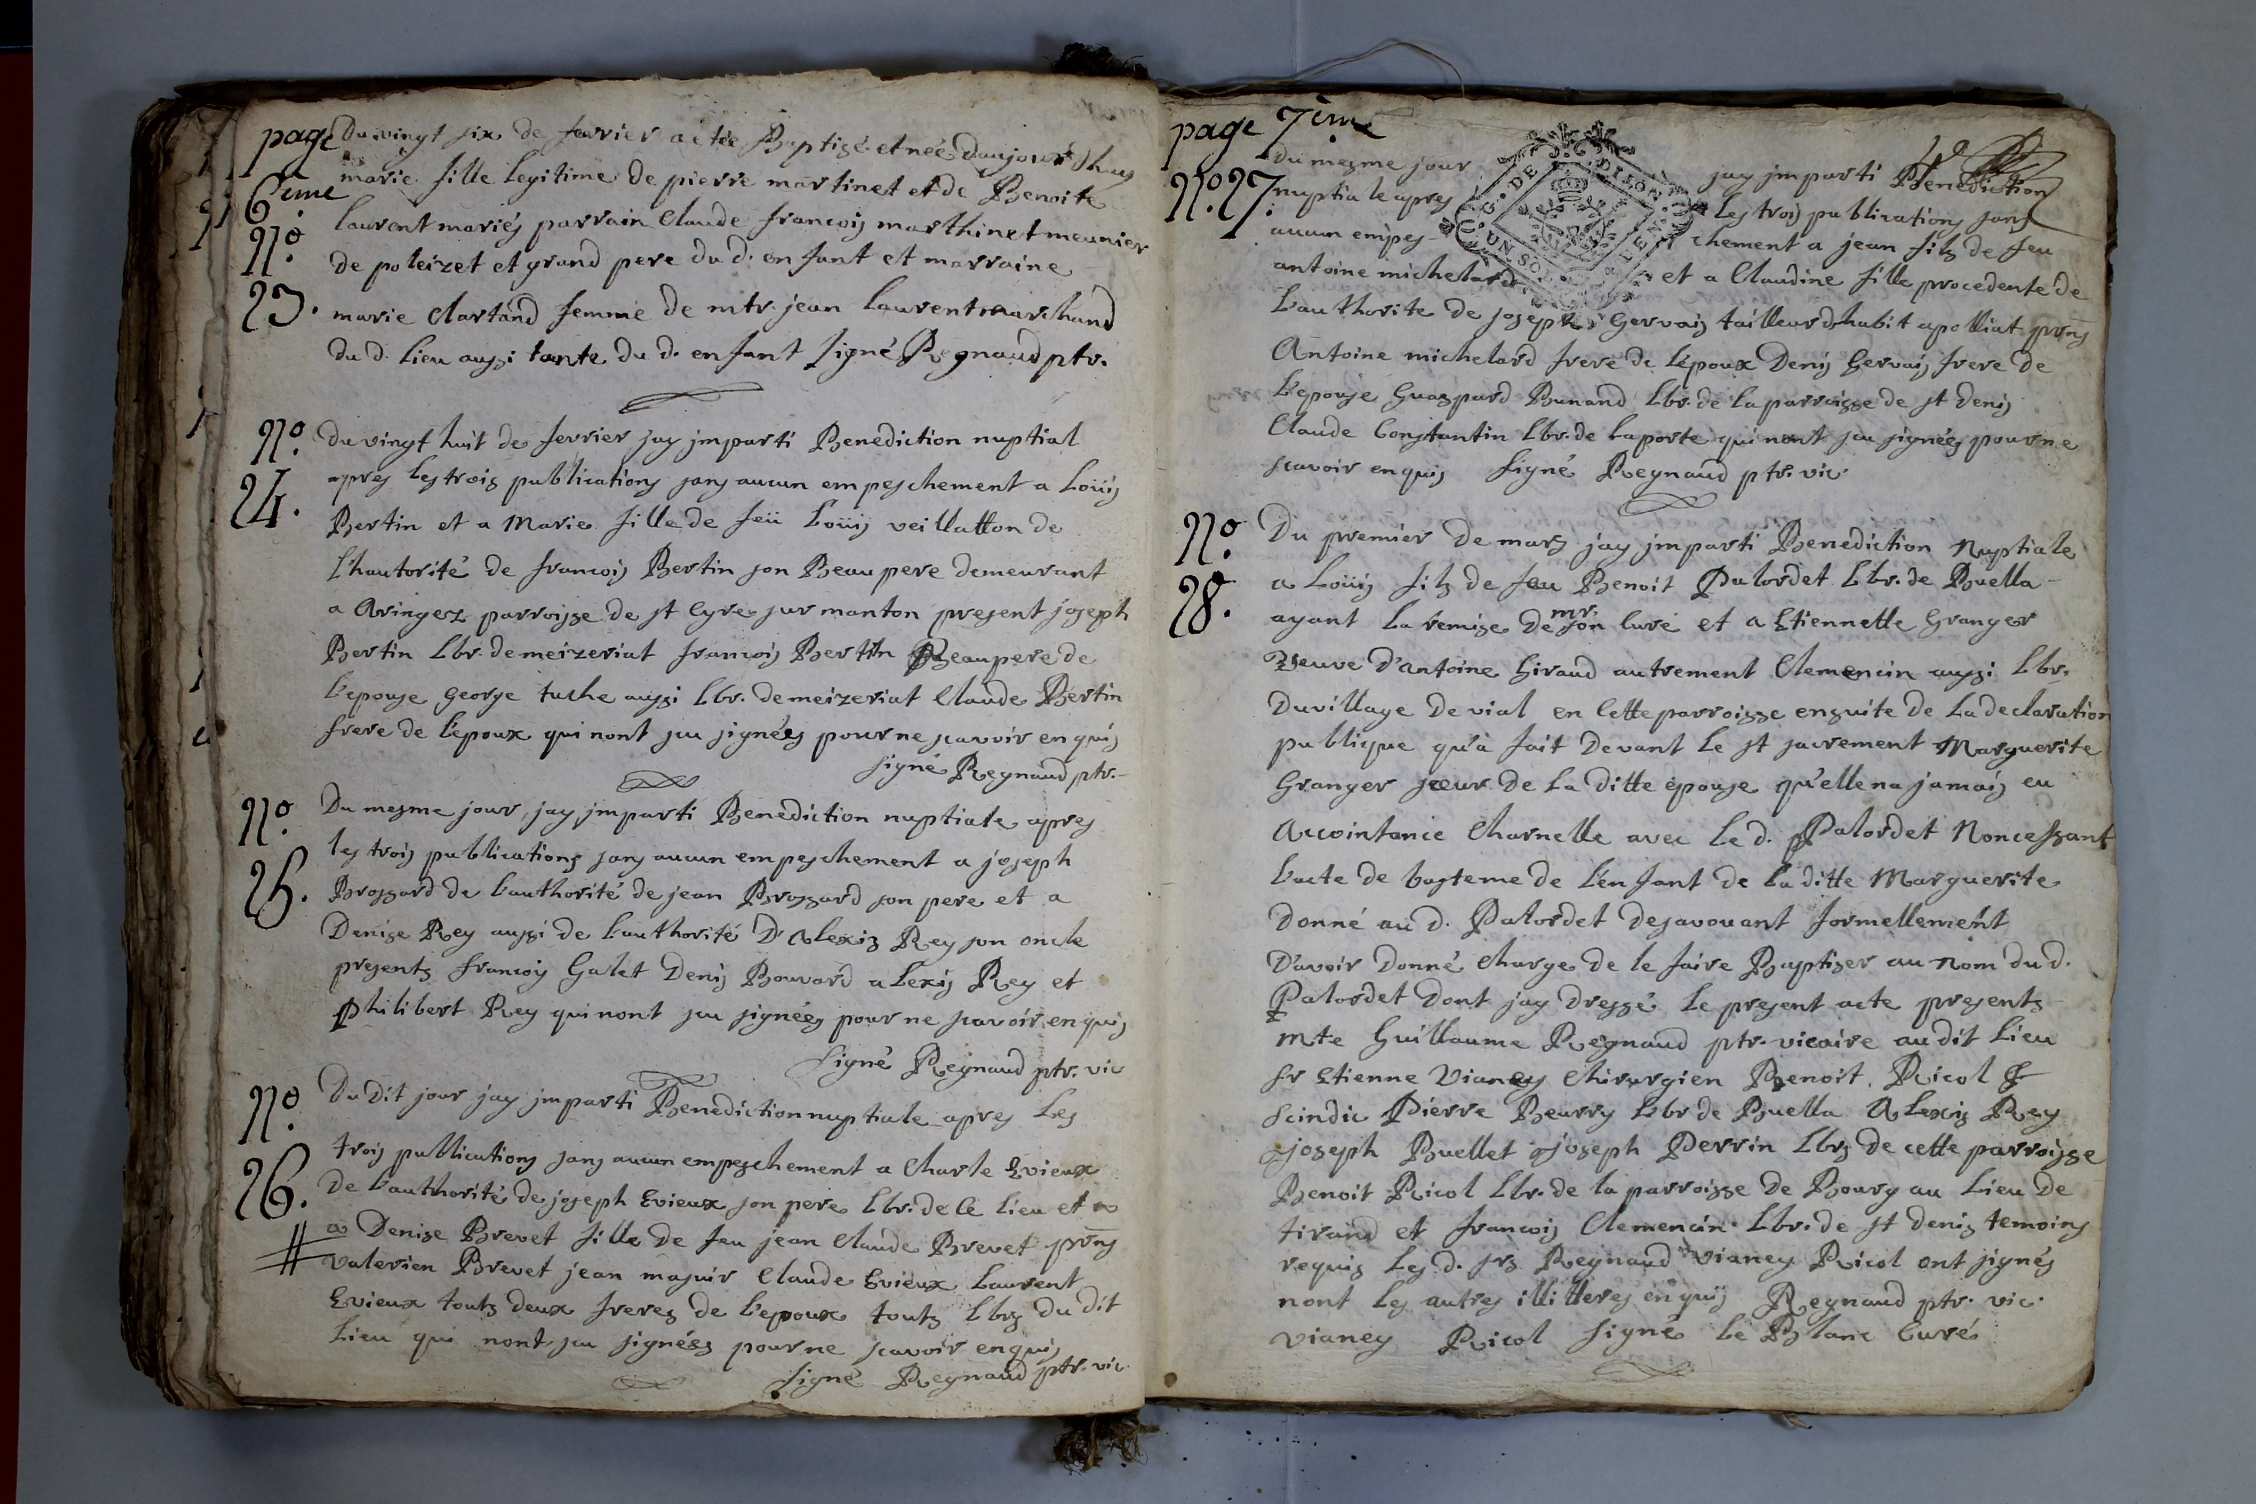 page 6ème
Du vingt six de fevrier a etée Baptisé et née daujourdhuy
marie fille legitime de pierre martinet et de Benoite
laurent mariés parrain Claude francois marthinet meunier
de poleizet et grand pere du d. enfant et marraine
marie Clartand femme de mtr. jean laurent marchand
du d. lieu aussi tante du d. enfant signé Regnaud ptr.
No. 23.
No. 24.
Du vingt huit de fevrier jay jmparti Benediction nuptial
apres les trois publications sans aucun empeschement a Loüis
Bertin et a Marie fille de feü Loüis veillatton de
L'hautorité de francois Bertin son Beaupere demeurant
a Aringes parroisse de st Cyre sur manton present joseph
Bertin Lbr. de meizeriat francois Bertin Beaupere de
L'epouse george tuche aussi Lbr. de meizeriat Claude Bertin
frere de L'epoux qui nont scu signées pour ne scavoir enquis
signé Regnaud ptr.
No. 25.
Du mesme jour, jay jmparti Benediction nuptiale apres
les trois publications sans aucun empeschement a joseph
Brossard de L'authorité de jean Brossard son pere et a
Denise Rey aussi de L'authorité D'Alexis Rey son oncle
presents francois Galet Denis Bouvard alexis Rey et
Philibert Rey qui nont scu signées pour ne scavoir enquis
signé Regnaud ptr. vic
No. 26.
Du dit jour jay jmparti Benediction nuptiale apres les
trois publications sans aucun empeschement a Charle Evieux
De L'authorité de joseph Evieux son pere Lbr. de Ce lieu et a
a Denise Brevet fille de feu jean Claude Brevet pnts
valerien Brevet jean majuir Claude Evieux Laurent
Evieux touts deux freres de L'epoux touts Lbrs du dit
Lieu qui nont scu signéés pour ne scavoir enquis
signé Regnaud ptr. vic
page 7ème
No. 27.
G. DE DIJON
UN SOL
Du mesme jour jay jmparti Benediction
nuptiale apres les trois publications sans
aucun empes- chement a jean fils de feu
antoine michelard et a Claudine fille procedente de
L'authorite de joseph Gervais tailleur dhabit apolliat pnts
Antoine michelard frere de L'époux Denis Gervais frere de
L'epouse Guaspard Bunand Lbr. de la parroisse de st Denis
Claude Constantin Lbr. de laporte qui nont scu signées pour ne
scavoir enquis signé Regnaud ptr. vic
No. 28.
Du premier de mars jay jmparti Benediction Nuptiale
a Loüis fils de feu Benoit Palordet Lbr. de Buella
ayant La remise De mr. son Curé et a Etiennette Granger
veuve D'antoine Giraud autrement Clemencin aussi Lbr.
Du village De vial en Cette parroisse ensuite de La declaration
publique qu'à fait Devant Le st sacrement Marguerite
Granger sœur De La Ditte épouse qu'elle na jamais eu
Accointance Charnelle avec Le d. Palordet Noncessant
L'acte de bapteme de L'enfant de la ditte Marguerite
Donné au d. Palordet Desavouant formellement
D'avoir Donné Charge de le faire Baptiser au nom du d.
Palordet Dont jay Dressé Le present acte presents
mte Guillaume Regnaud ptr. vicaire au dit Lieu
sr Etienne Vianey Chirurgien Benoit Ricol
scindic Pierre Beurry Lbr de Buella Alexis Rey
joseph Buellet joseph Perrin Lbrs de cette parroisse
Benoit Ricol Lbr. de la parroisse De Bourg au Lieu De
tirand et francois Clemencin Lbr. de st denis temoins
requis Les d. srs Regnaud Vianey Ricol ont signés
nont les autres illitteres enquis Regnaud ptr. vic.
vianey Ricol signé Le Blanc Curé